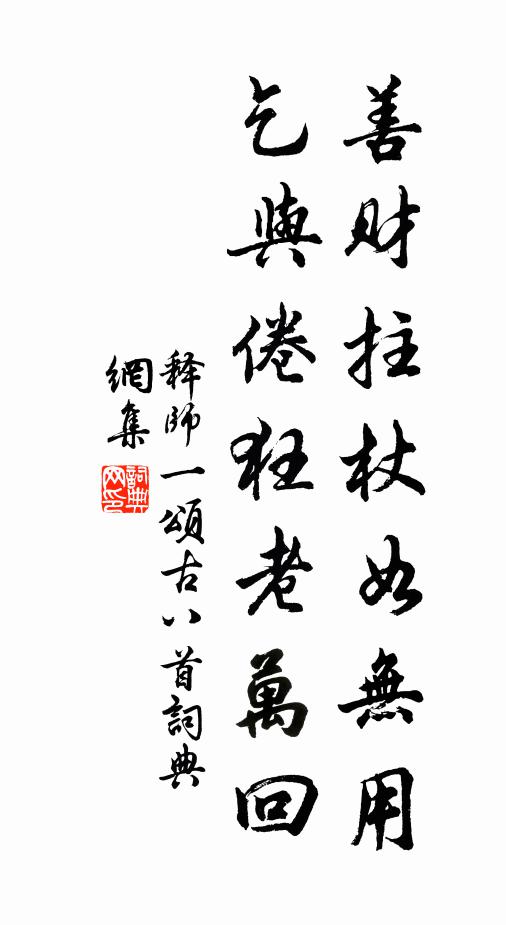 善财拄杖如無用
乞與倦狂老萬回
释師一頌古八首詞典
網集
詞典網印